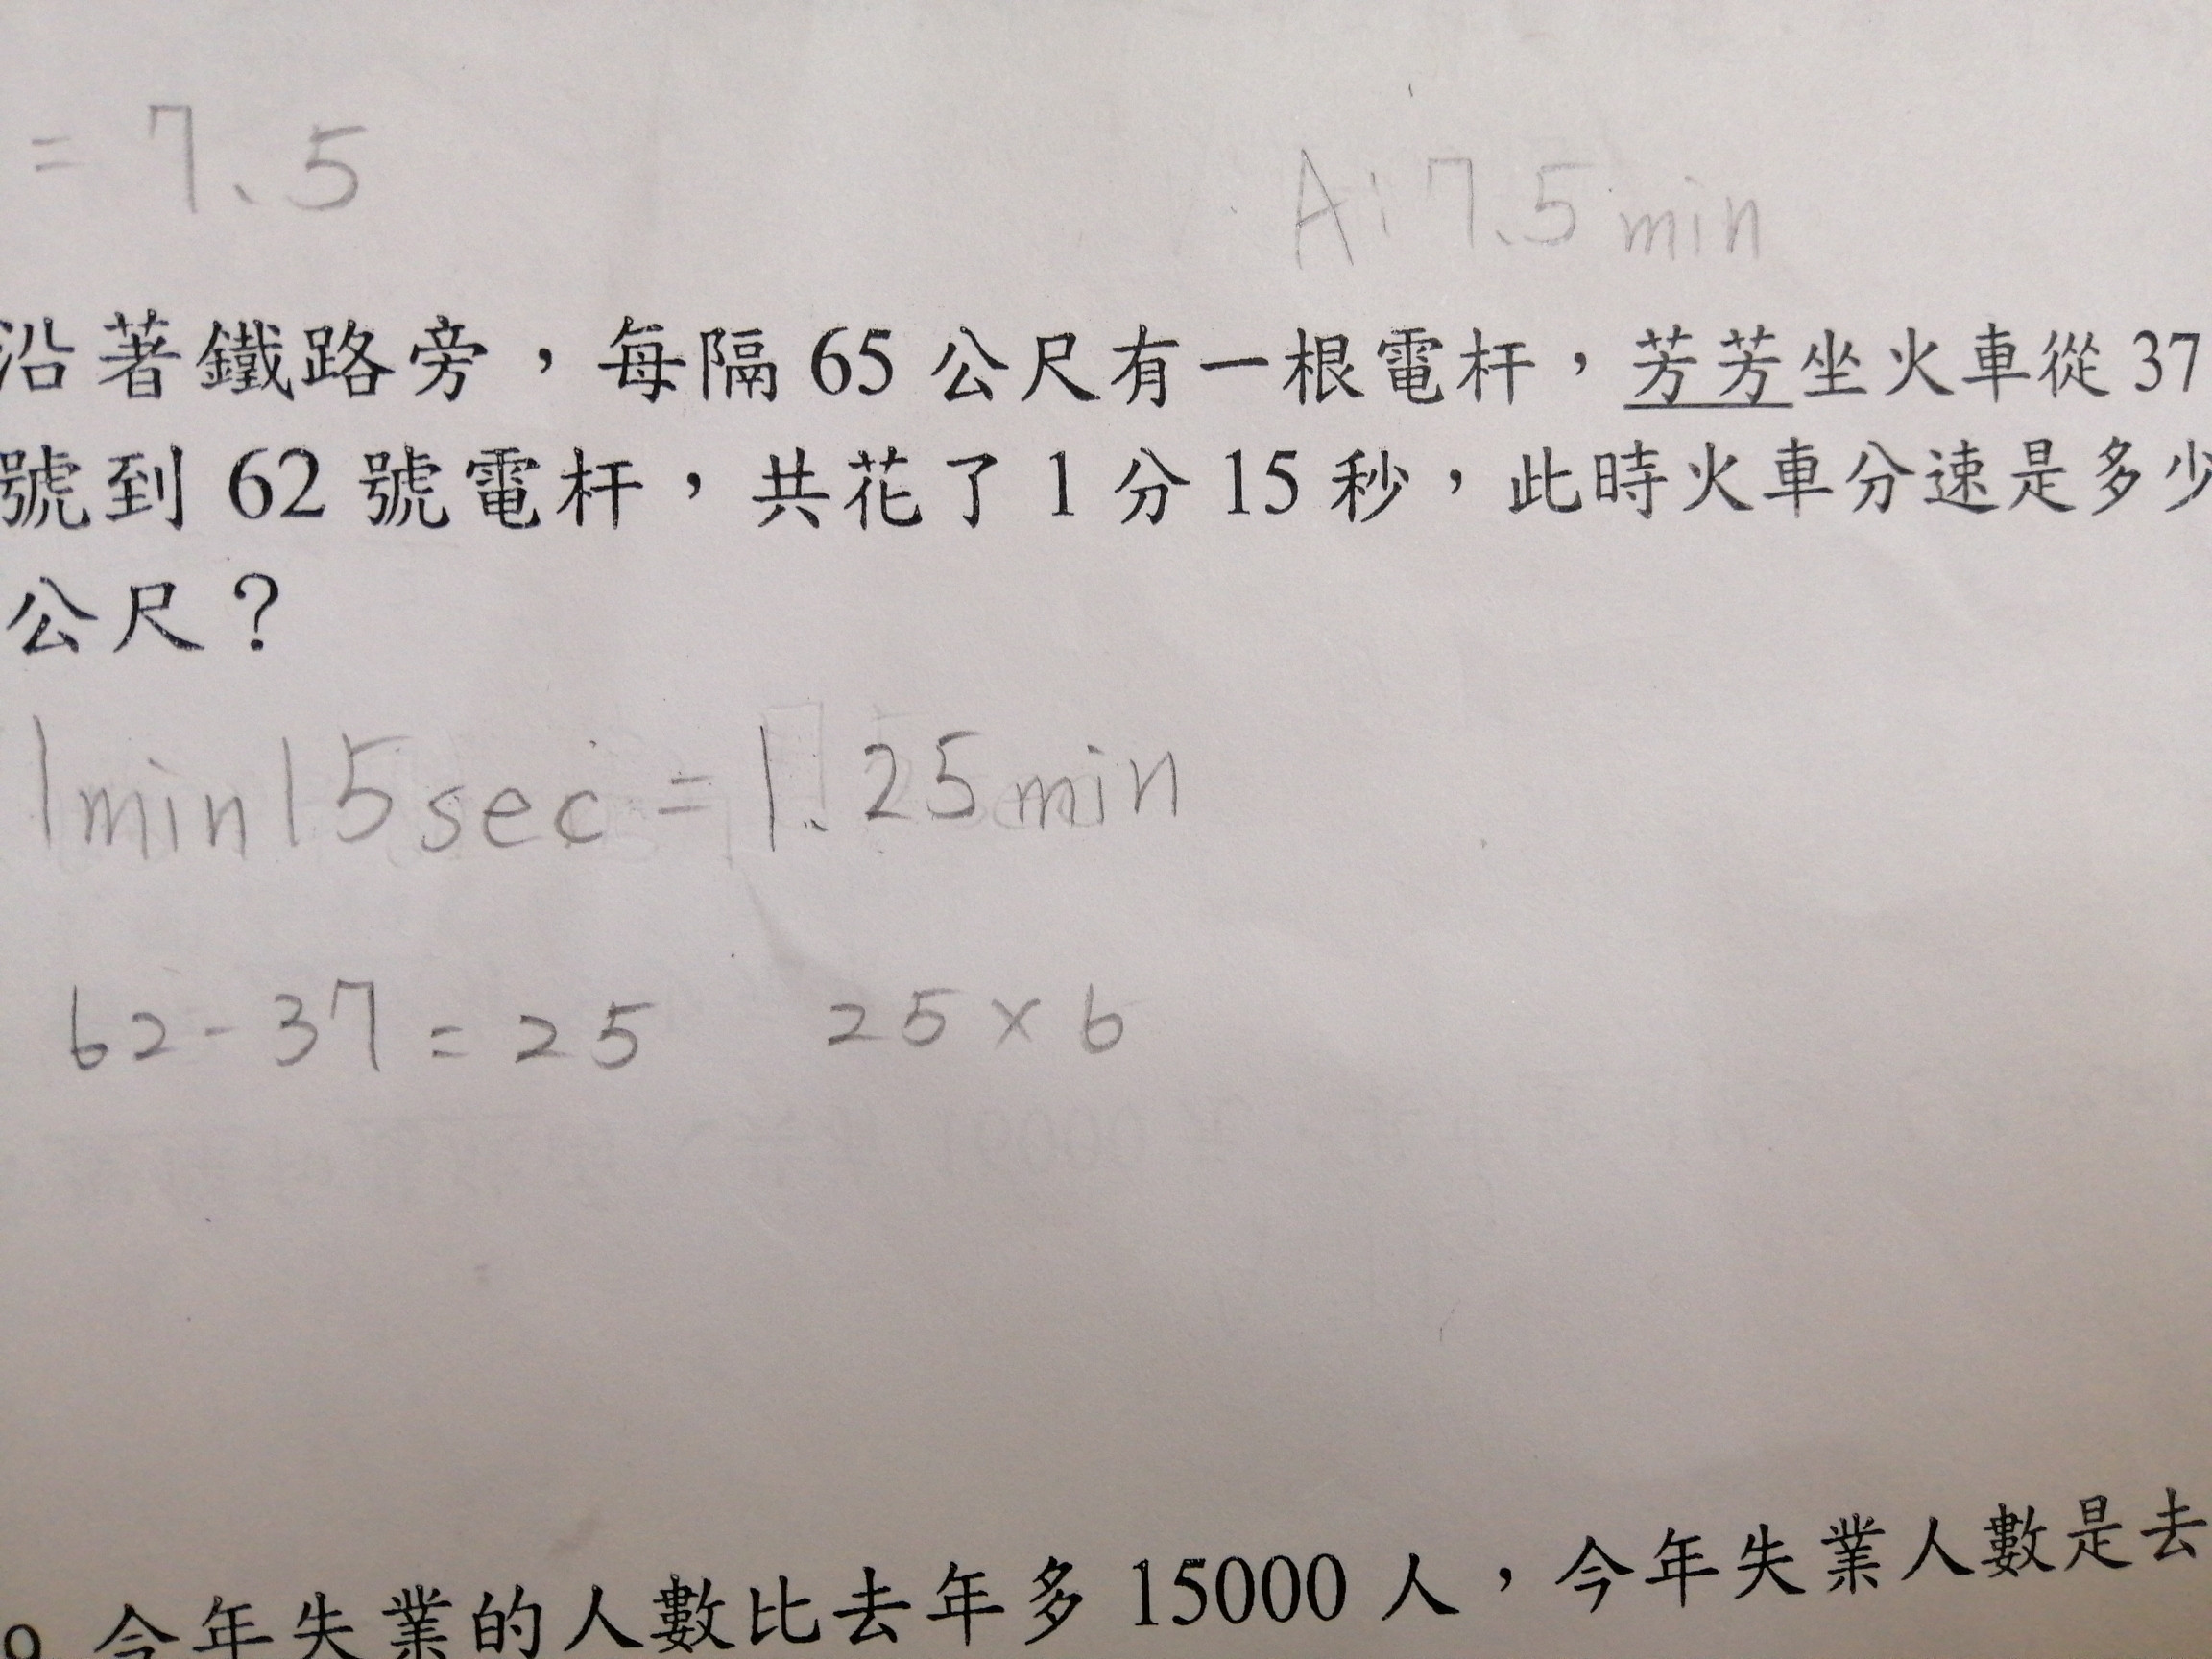 = 7.5
A: 7.5 min
沿著鐵路旁，每隔 65 公尺有一根電杆，芳芳坐火車從 37
號到 62 號電杆，共花了 1 分 15 秒，此時火車分速是多少
公尺？
1min15sec = 1.25min
62-37=25 25×6
9 今年失業的人數比去年多 15000 人，今年失業人數是去